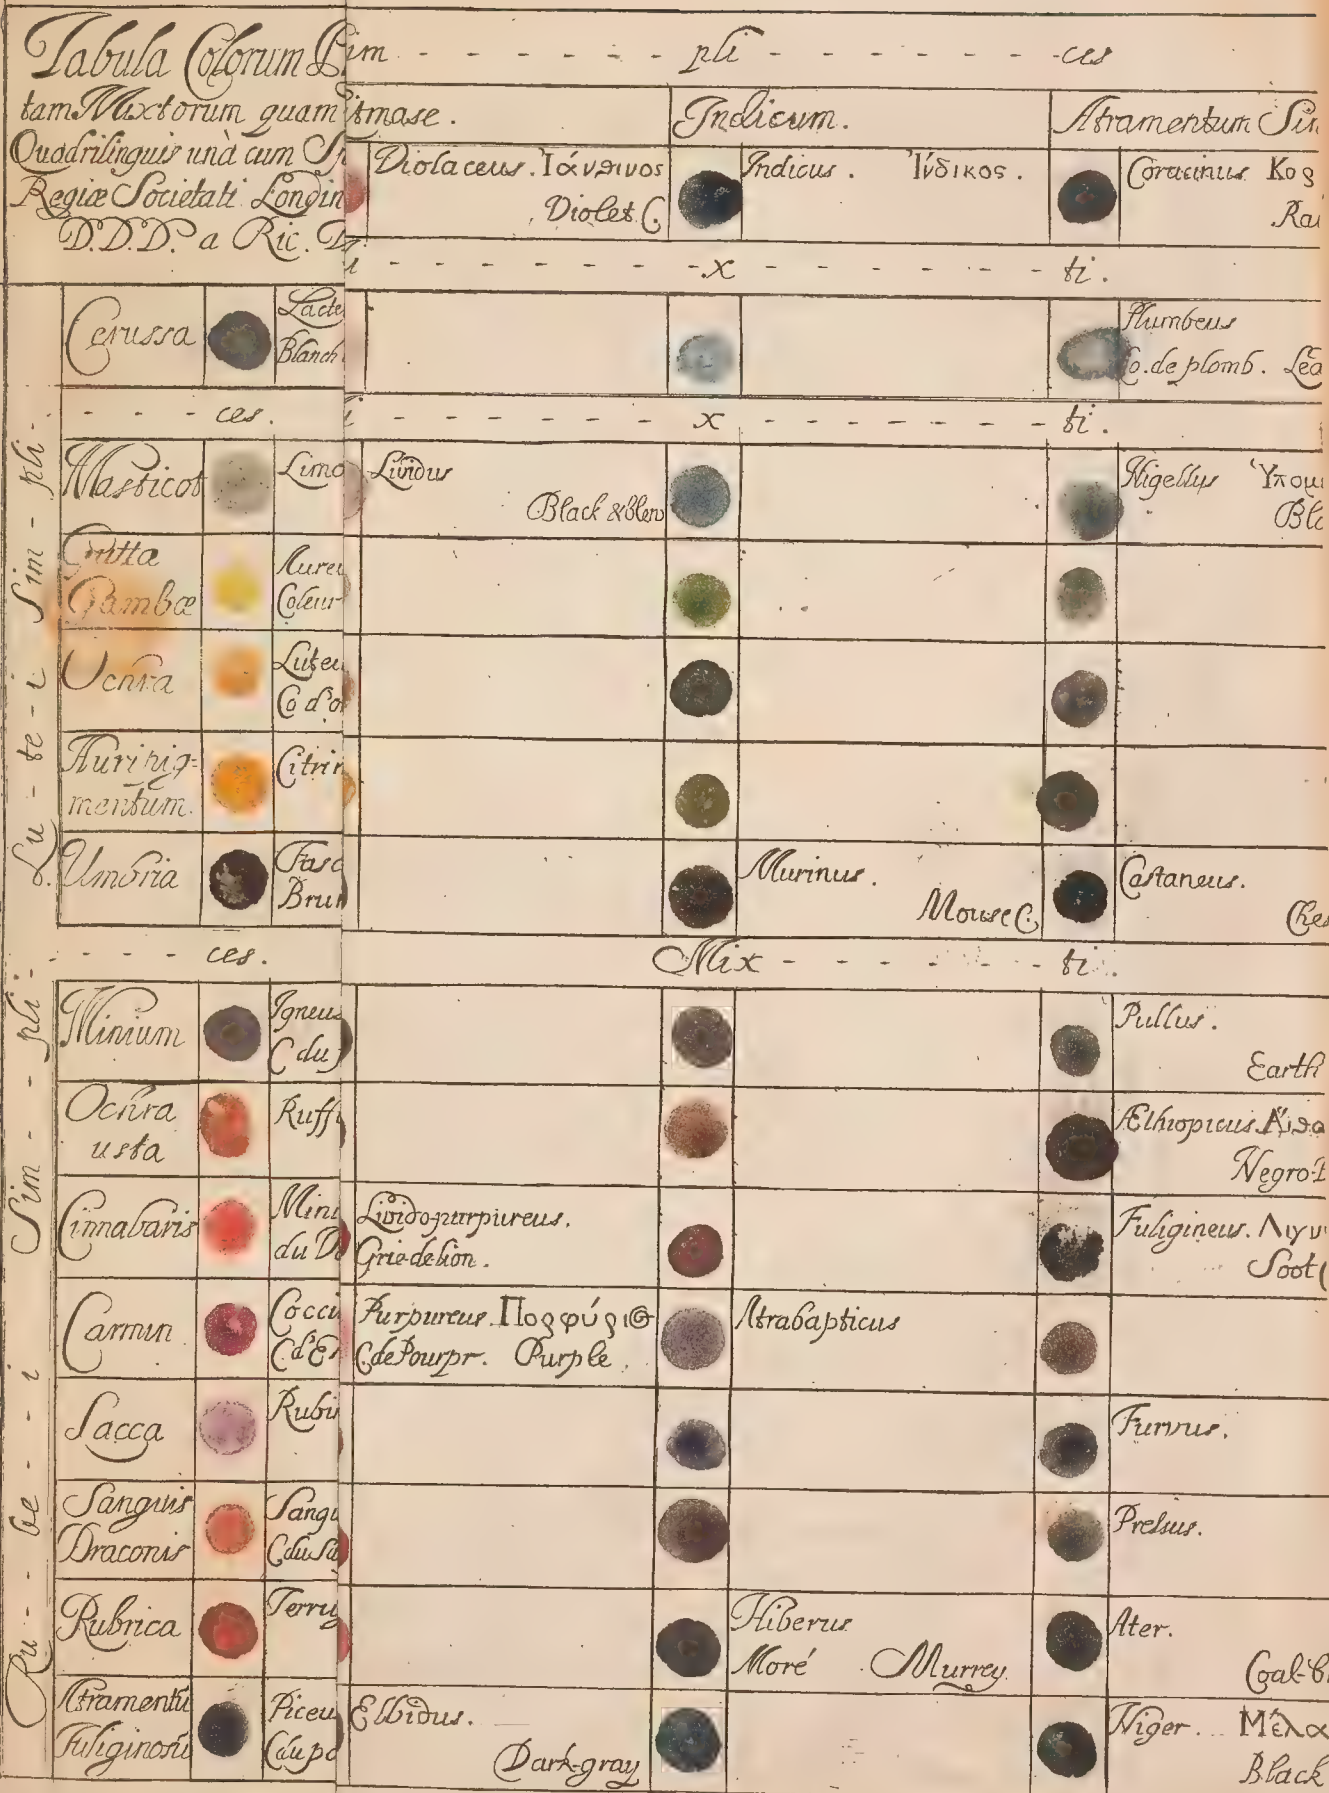 Tabula Colorum Sim - - - - - pli - - - - - - - ces
tam Mixtorum quam
Quadrilinguis unà cum
Regiæ Societati Londin
D.D.D. a Ric.
tmase.
Indicum.
Atramentum
Violaceus. Ἰάνθινος
Violet C.
Indicus. Ἴνδικος.
Coracinus Κορ
Rav
- - - - - - - x - - - - - - ti.
Cerussa
Lacte
Blanch
Plumbeus
Co. de plomb. Lea
- - - ces.
- - - - - - x - - - - - - ti.
Lu - te - i Sim - pli -
Masticot
Limo
Lividus
Black & blew
Nigellus Ὑπομ
Bla
Gutta
Gambæ
Aure
Coleur
Ochra
Luteu
Co d'o
Auripig-
mentum.
Citrin
Umbria
Fusc
Brun
Murinus.
Mouse C.
Castaneus.
Ches
- - - - ces.
Mix - - - - - - - ti.
Ru - - be - - i Sim - - pli -
Minium
Igneus
C du
Pullus.
Earth
Ochra
usta
Ruff
Æthiopicus. Αιθο
Negro-
Cinnabaris
Mini
du
Livido-purpureus.
Gris-de-lion.
Fuligineus. Λιγν
Soot C
Carmin
Cocci
C d'E
Purpureus. Πορφύριος
C de Pourpr. Purple.
Atrabapticus
Lacca
Rubi
Furvus.
Sanguis
Draconis
Sangu
C du Sa
Presus.
Rubrica
Ferru
Hiberus
Moré Murrey.
Ater.
Coal-b
Atramentū
Fuliginosū
Piceu
C du po
Elbidus.
Dark-gray
Niger. Μέλα
Black